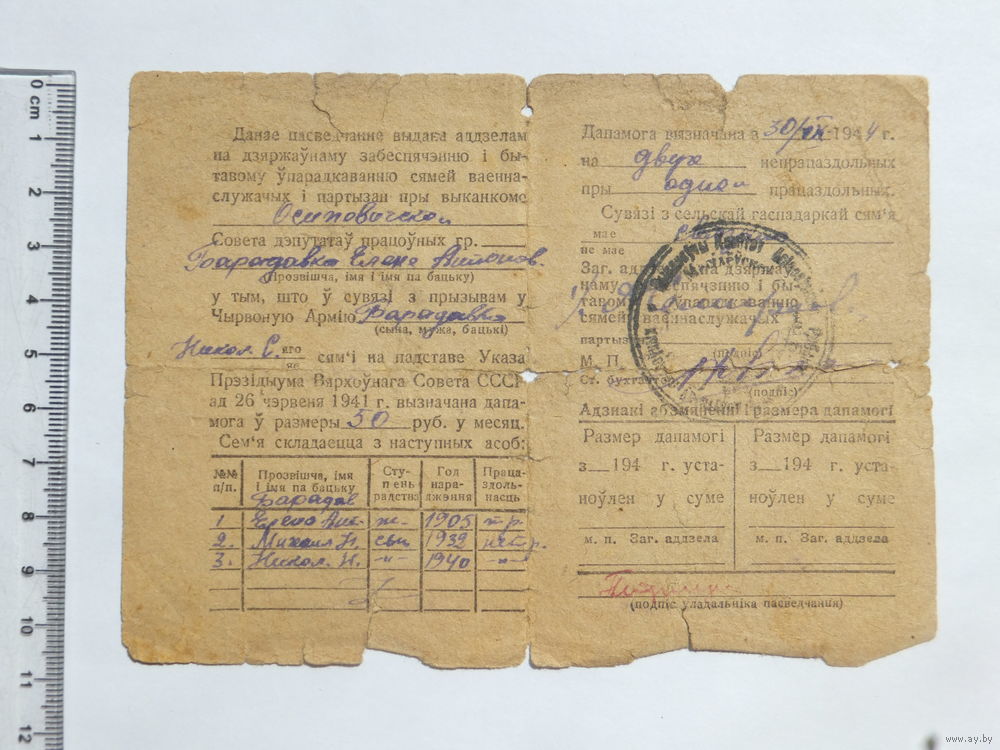 0 cm 1 2 3 4 5 6 7 8 9 10 11 12
Данае пасведчанне выдана аддзелам
па дзяржаўнаму забеспячэнню і бы-
тавому ўпарадкаванню сямей ваенна-
служачых і партызан пры выканкоме
Осиповичской
Совета дэпутатаў працоўных гр.
Барадавка Елене
(Прозвішча, імя і імя па бацьку)
у тым, што ў сувязі з прызывам у
Чырвоную Армію Барадавка
(сына, мужа, бацькі)
Никол. С. яго
яе
сям'і на падставе Указа
Прэзідыума Вярхоўнага Совета СССР
ад 26 чэрвеня 1941 г. вызначана дапа-
мога ў размеры 50 руб. у месяц.
Сем'я складаецца з наступных асоб:
№№ п/п. Прозвішча, імя і імя па бацьку Сту-пень радства Год нара-джэння Праца-здоль-насць
Барадав
1 Елена Вик. ж. 1905 тр.
2. Михаил Н. сын 1939 нетр.
3. Никол. Н. -"- 1940 -"-
Дапамога вызначана з 30/ 1944 г.
на двух непрацаздольных
пры одной працаздольных.
Сувязі з сельскай гаспадаркай сям'я
мае
не мае
Заг. аддзела па дзяржаў-
наму забеспячэнню і бы-
тавому ўпарадкаванню
сямей ваеннаслужачых і
партызан
(подпіс)
М. П.
Ст. бухгалтар
(подпіс)
Адзнакі аб змяненні размера дапамогі
Размер дапамогі Размер дапамогі
з 194 г. уста- з 194 г. уста-
ноўлен у суме ноўлен у суме
м. п. Заг. аддзела м. п. Заг. аддзела
(подпіс уладальніка пасведчання)
www.ay.by